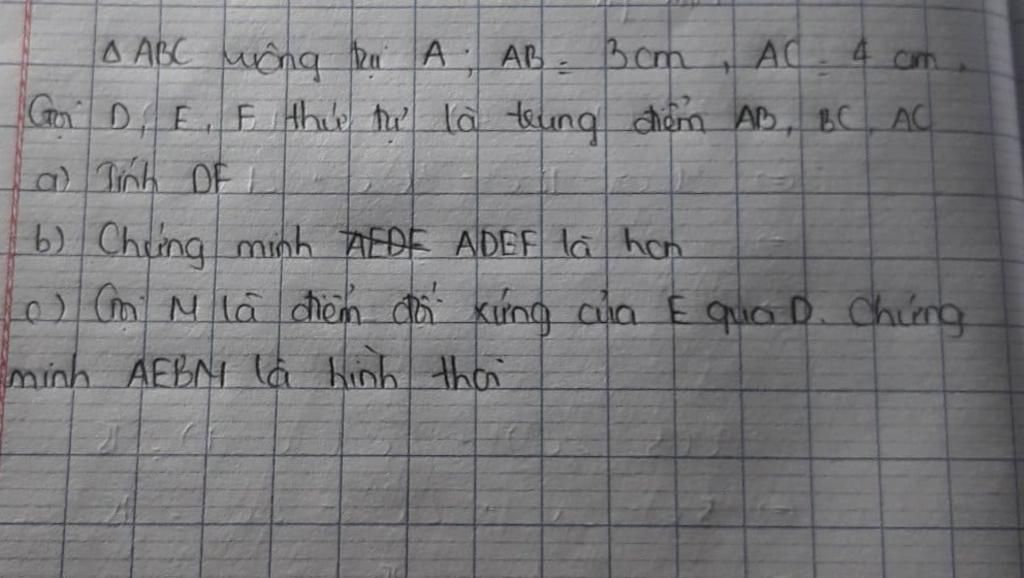 Δ ABC vuông tại A; AB = 3cm, AC = 4 cm.
Gọi D, E, F thứ tự là trung điểm AB, BC, AC
a) Tính DF
b) Chứng minh AEDF ADEF là hcn
c) Gọi M là điểm đối xứng của E qua D. Chứng
minh AEBM là hình thoi